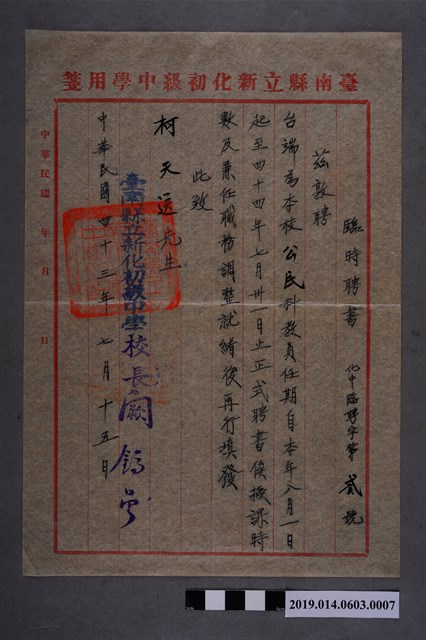 臺南縣立新化初級中學用箋
臨時聘書
化中臨聘字第貳號
茲敦聘
台端為本校公民科教員任期自本年八月一日
起至四十四年七月卅一日止正式聘書俟授課時
數及兼任職務調整就緒後再行填發
此致
柯天送先生
臺南縣立新化初級中學校長
中華民國四十三年七月十五日
中華民國 年 月 日
2019.014.0603.0007